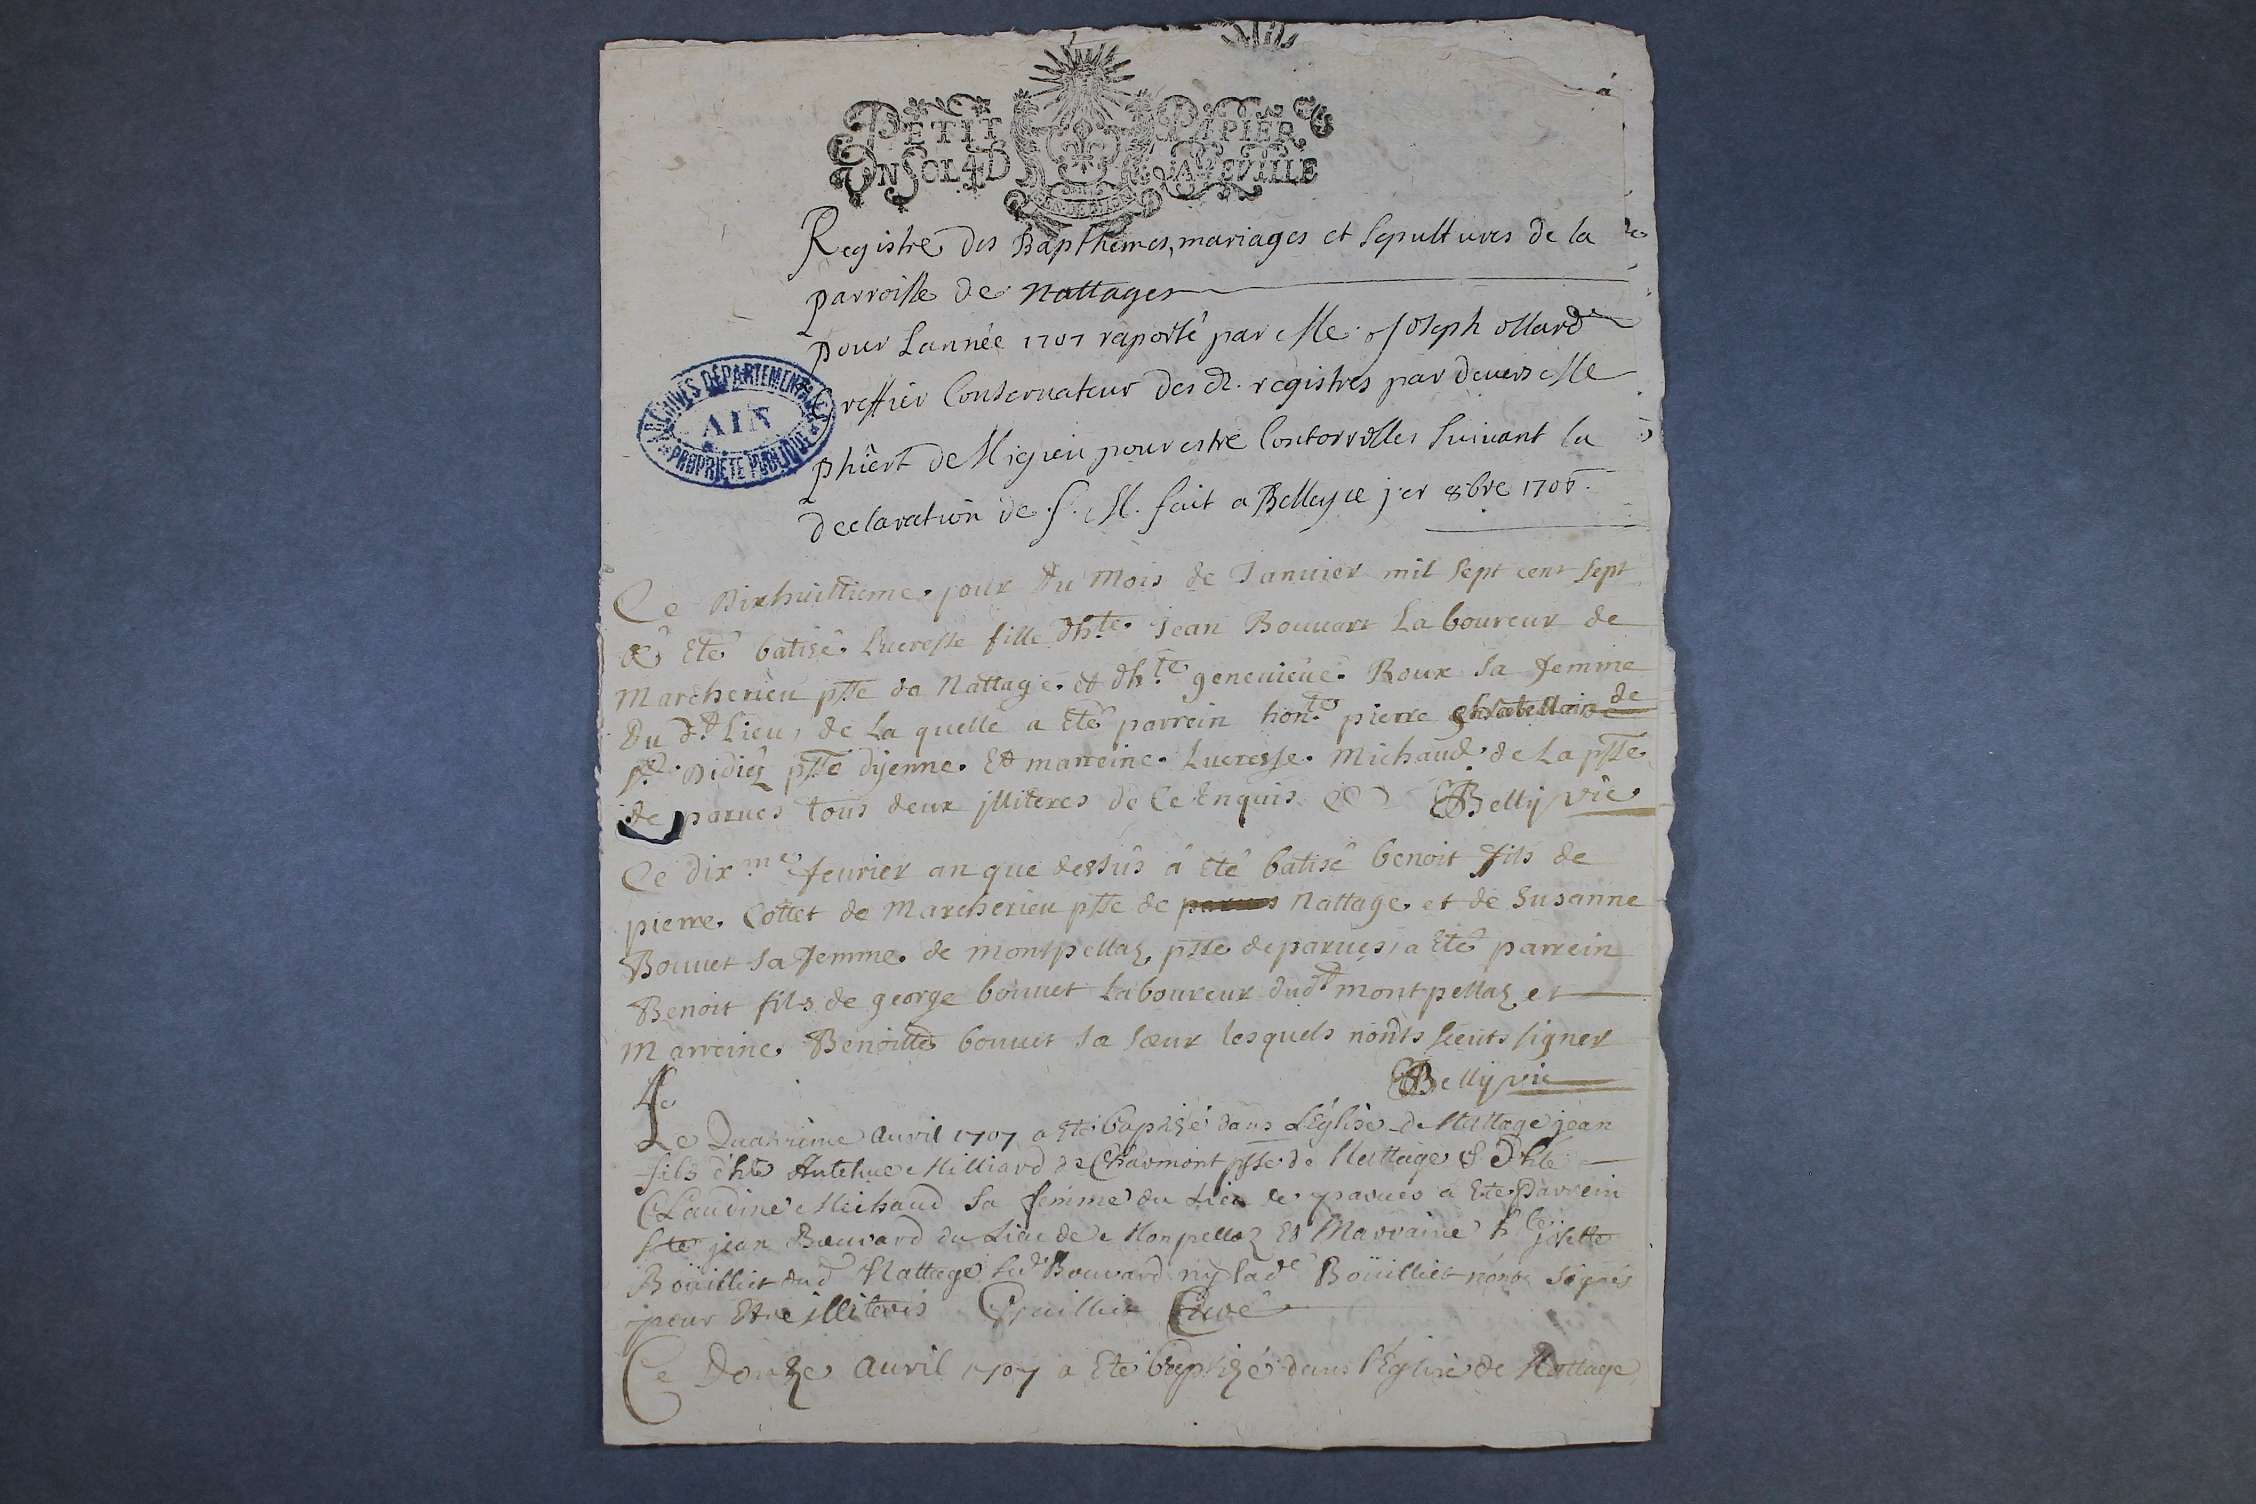 PETIT PAPIER
UN SOL 4 D LA FEUILLE
ARCHIVES DÉPARTEMENTALES
AIN
PROPRIÉTÉ PUBLIQUE
Registre des Bapthemes, mariages et sepultures de la
parroisse de Nattages
pour Lannée 1707 raporté par Me Joseph ollard
Greffier Conservateur des d. registres par devers Me
phibert de Migieu pour estre Controrolles suivant la
declaration de s. M. fait a Belley ce jer 8bre 1706
Ce Dixhuittieme jour Du Mois de Januier mil sept cent sept
a Eté batisé Lucresse fille dh.te Jean Bouuart Laboureur de
Marcherieu psse de Nattage et dh.te geneuieue Roux sa femme
Du d.t Lieu, de Laquelle a Eté parrein hon.te pierre chatellain de
s.t Didiez psse dyenne Et marreine Lucresse Michaud de La psse
de parues tous deux jlliteres de Ce Enquis Belly vic
Ce dix.me feurier an que dessus â Eté batisé benoit fils de
pierre Cottet de Marcherieu psse de parues Nattage et de Susanne
Bouuet sa femme de montpellaz psse de parues, a Eté parrein
Benoit fils de george bouuet Laboureur dud.t montpellaz et
Marreine Benoitte bouuet sa sœur lesquels nonts sceuts signer
Belly vic
Le
Le Quatrieme Auril 1707 a Eté baptizé dans LEglise de Nattage jean
fils d'hte Antelme Milliard de Charmont psse de Nattage & dhte
Claudine Michaud sa femme du Lieu de parues a Ete Parrein
hte jean Bouuard du Lieu de Monpellaz Et Marraine h josette
Boüilliet dud Nattage Le d Bouuard ny la de Boüilliet nonts signés
pour Etre jlliterés Curé
Ce Douze Auril 1707 a Eté baptizé dans l'Eglise de Nattage